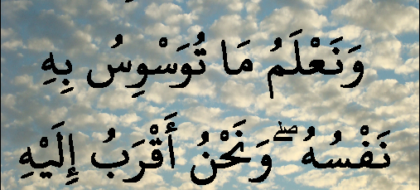 وَنَعْلَمُ مَا تُوَسْوِسُ بِهِ
نَفْسُهُ ۖ وَنَحْنُ أَقْرَبُ إِلَيْهِ